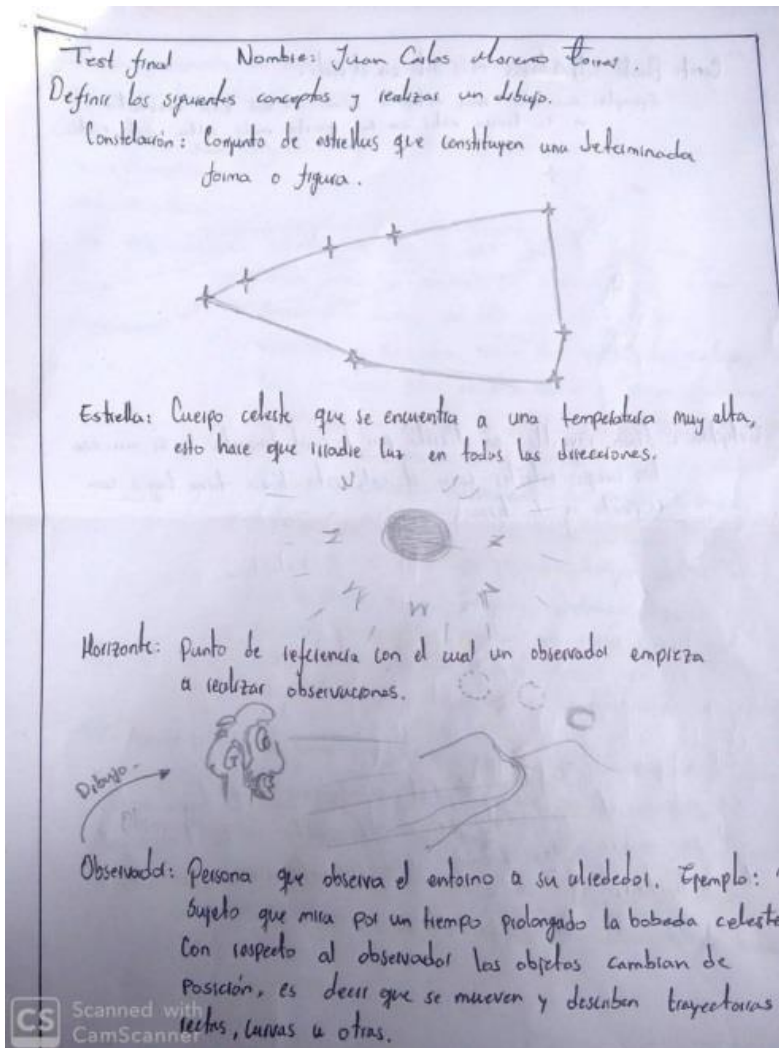 Test final Nombre: Juan Carlos Moreno Torres.
Definir los siguientes conceptos y realizar un dibujo.
Constelación: Conjunto de estrellas que constituyen una determinada
forma o figura.
Estrella: Cuerpo celeste que se encuentra a una temperatura muy alta,
esto hace que irradie luz en todas las direcciones.
Horizonte: Punto de referencia con el cual un observador empieza
a realizar observaciones.
Dibujo.
Observador: Persona que observa el entorno a su alrededor. Ejemplo:
Sujeto que mira por un tiempo prolongado la bobada celeste
Con respecto al observador los objetos cambian de
Posición, es decir que se mueven y describen trayectorias
rectas, curvas u otras.
CS Scanned with
CamScanner